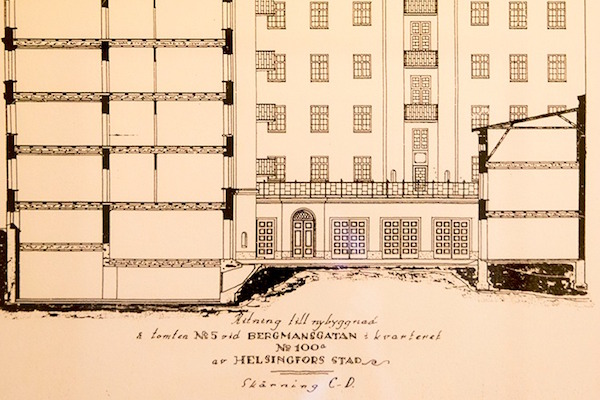 Ritning till nybyggnad
å tomten No 5 vid BERGMANSGATAN i kvarteret
No 100a
av HELSINGFORS STAD
Skärning C-D.